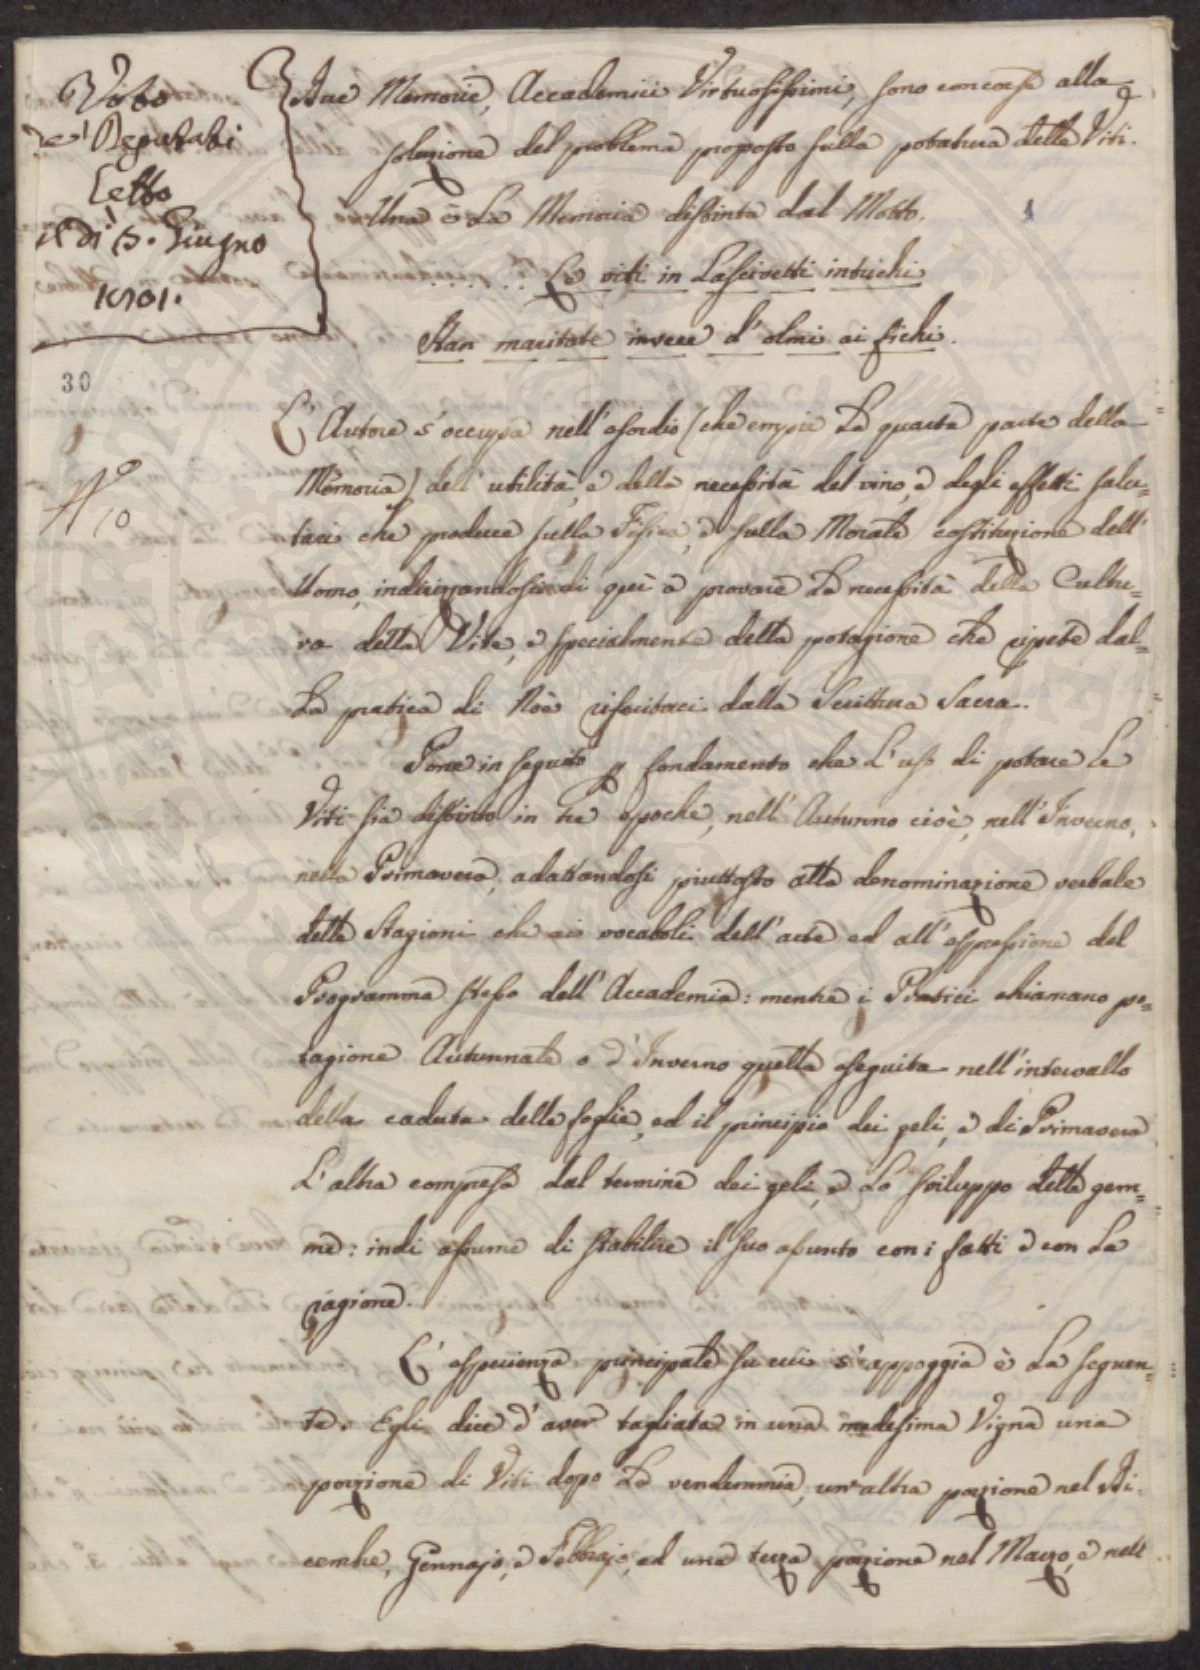 Voto
de' Deputati
Letto
il dì 3. Giugno
1801.
30
N° 10
1
Due Memorie, Accademici Virtuosissimi, sono concorse alla
soluzione del problema proposto sulla potatura delle Viti.
Una è La Memoria distinta dal Motto.
. . . . . . Le viti in Lascivetti intrichi
Stan maritate invece d'olmi ai fichi.
L'Autore s'occupa nell'esordio (che empie La quarta parte della
Memoria) dell'utilità, e della necessità del vino, e degli effetti salu=
tari che produce sulla Fisica, e sulla Morale costituzione dell'
Uomo, indirizzandosi di qui a provare La necessità della Cultu=
ra della Vite, e specialmente della potazione che ripete dal=
La pratica di Noè riferitaci dalla Scrittura Sacra.
Pone in seguito p fondamento che L'uso di potare Le
Viti sia distinto in tre epoche, nell'Autunno cioè, nell'Inverno,
nella Primavera, adattandosi piuttosto alla denominazione verbale
delle Stagioni che ai vocaboli dell'arte ed all'espressione del
Programma stesso dell'Accademia: mentre i Pratici chiamano po=
tazione Autunnale o d'Inverno quella eseguita nell'intervallo
della caduta delle foglie, ed il principio dei geli, e di Primavera
L'altra compresa dal termine dei geli, e Lo sviluppo delle gem=
me: indi assume di stabilire il suo assunto con i fatti e con La
ragione.
L'esperienza principale su cui s'appoggia è La seguen=
te. Egli dice d'aver tagliata in una medesima Vigna una
porzione di Viti dopo La vendemmia, un'altra porzione nel Di=
cembre, Gennajo, e Febbrajo, ed una terza porzione nel Marzo, e nell'